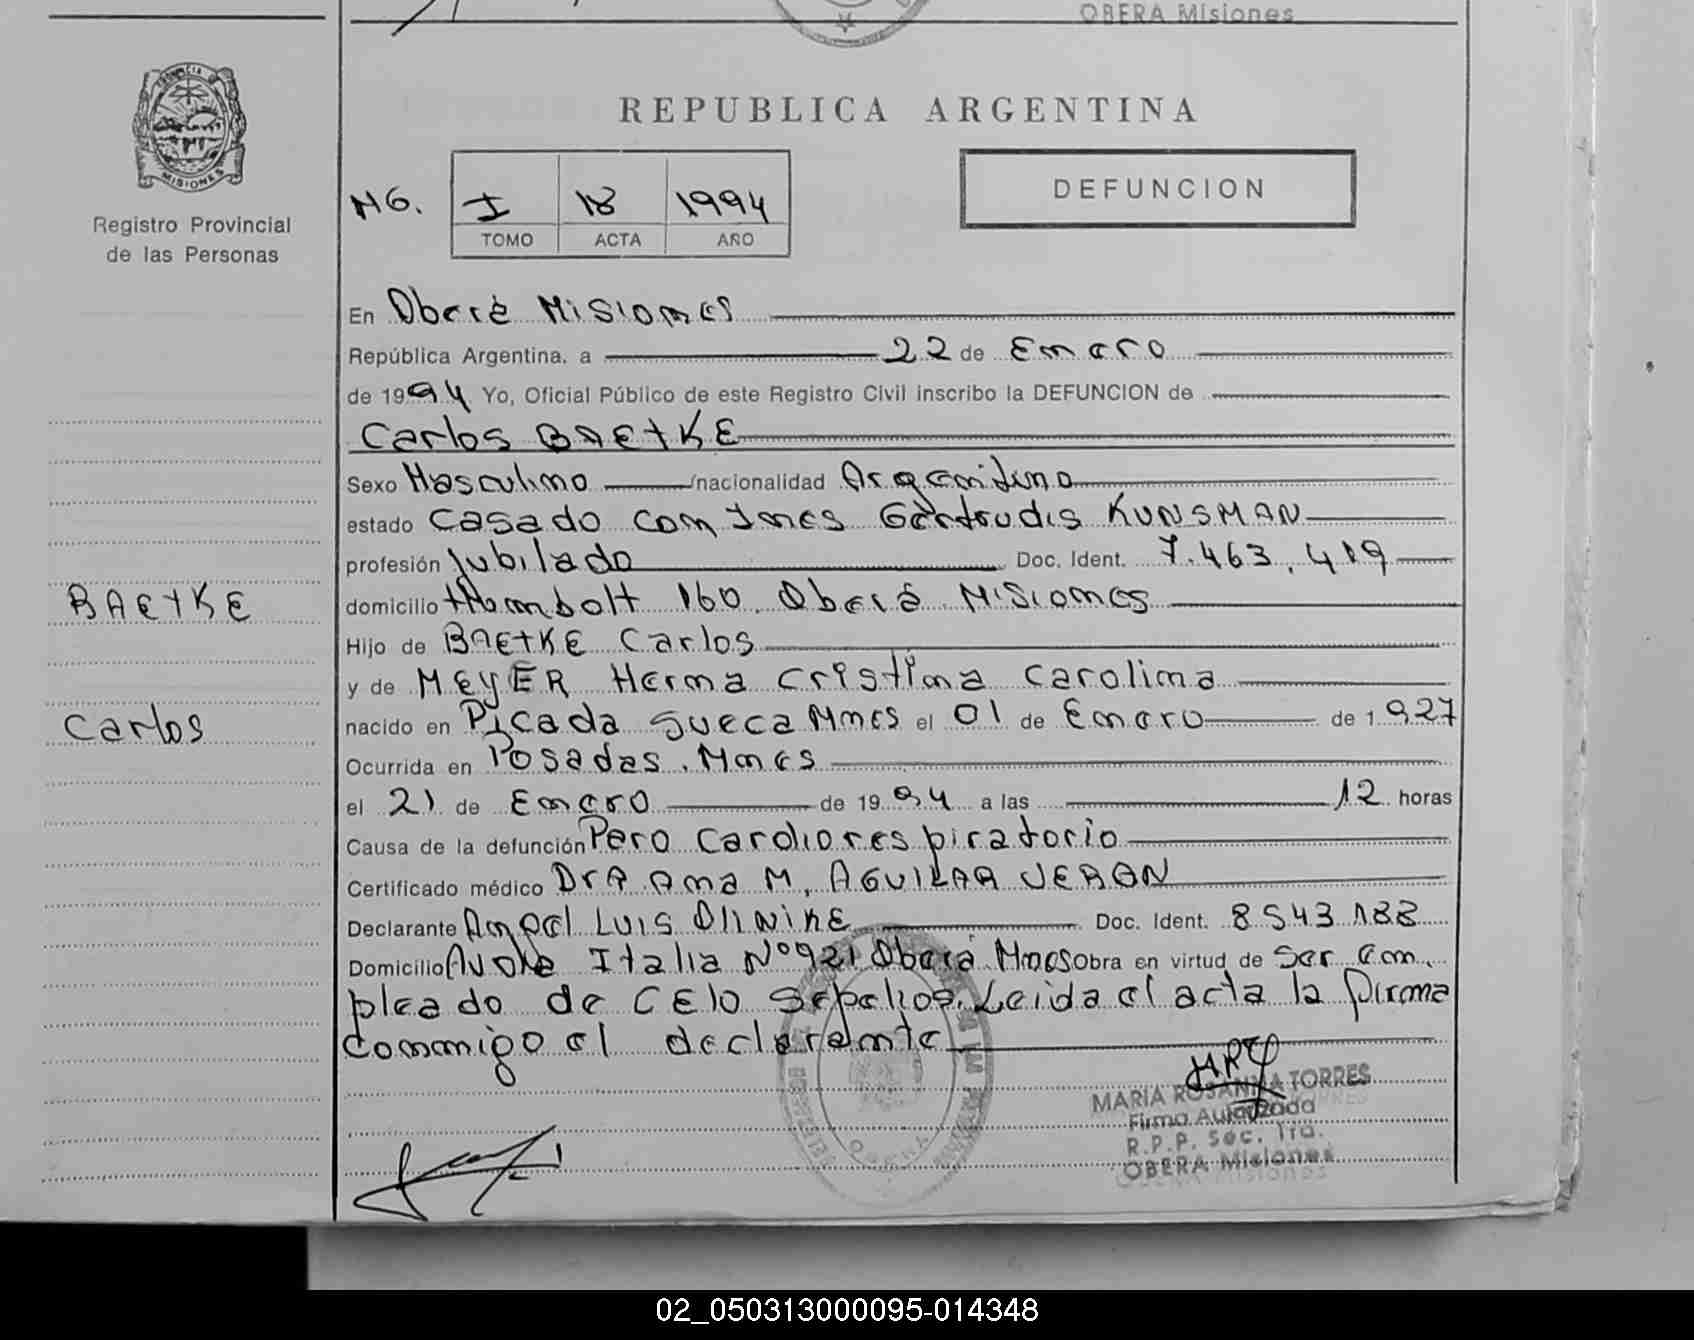 OBERA Misiones
PROVINCIA D
MISIONES
Registro Provincial
de las Personas
BAETKE
Carlos
REPUBLICA ARGENTINA
MG. I 18 1994
TOMO ACTA AÑO
DEFUNCION
En Oberá Misiones
República Argentina, a 22 de Enero
de 1994 Yo, Oficial Público de este Registro Civil inscribo la DEFUNCION de
Carlos BAETKE
Sexo Masculino nacionalidad Argentino
estado Casado con Ines Gertrudis KUNSMAN
profesión Jubilado Doc. Ident. 7.463.419
domicilio Humbolt 160. Oberá Misiones
Hijo de BAETKE Carlos
y de MEYER Herma Cristina Carolina
nacido en Picada Sueca Mnes el 01 de Enero de 1927
Ocurrida en Posadas. Mnes
el 21 de Enero de 1994 a las 12 horas
Causa de la defunción Pero Cardiorespiratorio
Certificado médico DrA Ana M. AGUILAR VERON
Declarante Angel Luis OLINIKE Doc. Ident. 8543188
Domicilio Avda Italia Nº 921 Oberá Mnes Obra en virtud de Ser em
pleado de CELO Sepelios. Leida el acta la firma
Conmigo el declarante
MARIA ROSANNA TORRES
Firma Autorizada
R.P.P. Sec. 1ra.
OBERA Misiones
02_050313000095-014348